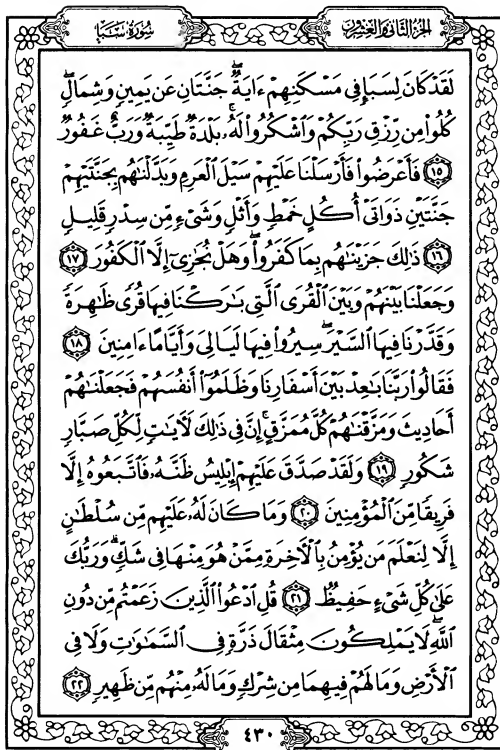 سُورَةُ سَبَإٍ
الجُزْءُ الثَّانِي وَالعِشْرُونَ
لَقَدْ كَانَ لِسَبَإٍ فِي مَسْكَنِهِمْ ءَايَةٌۖ جَنَّتَانِ عَن يَمِينٍ وَشِمَالٍۖ
كُلُوا۟ مِن رِّزْقِ رَبِّكُمْ وَٱشْكُرُوا۟ لَهُۥۚ بَلْدَةٌ طَيِّبَةٌ وَرَبٌّ غَفُورٌ
١٥ فَأَعْرَضُوا۟ فَأَرْسَلْنَا عَلَيْهِمْ سَيْلَ ٱلْعَرِمِ وَبَدَّلْنَٰهُم بِجَنَّتَيْهِمْ
جَنَّتَيْنِ ذَوَاتَىْ أُكُلٍ خَمْطٍ وَأَثْلٍ وَشَىْءٍ مِّن سِدْرٍ قَلِيلٍ
١٦ ذَٰلِكَ جَزَيْنَٰهُم بِمَا كَفَرُوا۟ۖ وَهَلْ نُجَٰزِىٓ إِلَّا ٱلْكَفُورَ ١٧
وَجَعَلْنَا بَيْنَهُمْ وَبَيْنَ ٱلْقُرَى ٱلَّتِى بَٰرَكْنَا فِيهَا قُرًى ظَٰهِرَةً
وَقَدَّرْنَا فِيهَا ٱلسَّيْرَۖ سِيرُوا۟ فِيهَا لَيَالِىَ وَأَيَّامًا ءَامِنِينَ ١٨
فَقَالُوا۟ رَبَّنَا بَٰعِدْ بَيْنَ أَسْفَارِنَا وَظَلَمُوٓا۟ أَنفُسَهُمْ فَجَعَلْنَٰهُمْ
أَحَادِيثَ وَمَزَّقْنَٰهُمْ كُلَّ مُمَزَّقٍۚ إِنَّ فِى ذَٰلِكَ لَءَايَٰتٍ لِّكُلِّ صَبَّارٍ
شَكُورٍ ١٩ وَلَقَدْ صَدَّقَ عَلَيْهِمْ إِبْلِيسُ ظَنَّهُۥ فَٱتَّبَعُوهُ إِلَّا
فَرِيقًا مِّنَ ٱلْمُؤْمِنِينَ ٢٠ وَمَا كَانَ لَهُۥ عَلَيْهِم مِّن سُلْطَٰنٍ
إِلَّا لِنَعْلَمَ مَن يُؤْمِنُ بِٱلْءَاخِرَةِ مِمَّنْ هُوَ مِنْهَا فِى شَكٍّۗ وَرَبُّكَ
عَلَىٰ كُلِّ شَىْءٍ حَفِيظٌ ٢١ قُلِ ٱدْعُوا۟ ٱلَّذِينَ زَعَمْتُم مِّن دُونِ
ٱللَّهِۖ لَا يَمْلِكُونَ مِثْقَالَ ذَرَّةٍ فِى ٱلسَّمَٰوَٰتِ وَلَا فِى
ٱلْأَرْضِ وَمَا لَهُمْ فِيهِمَا مِن شِرْكٍ وَمَا لَهُۥ مِنْهُم مِّن ظَهِيرٍ ٢٢
٤٣٠